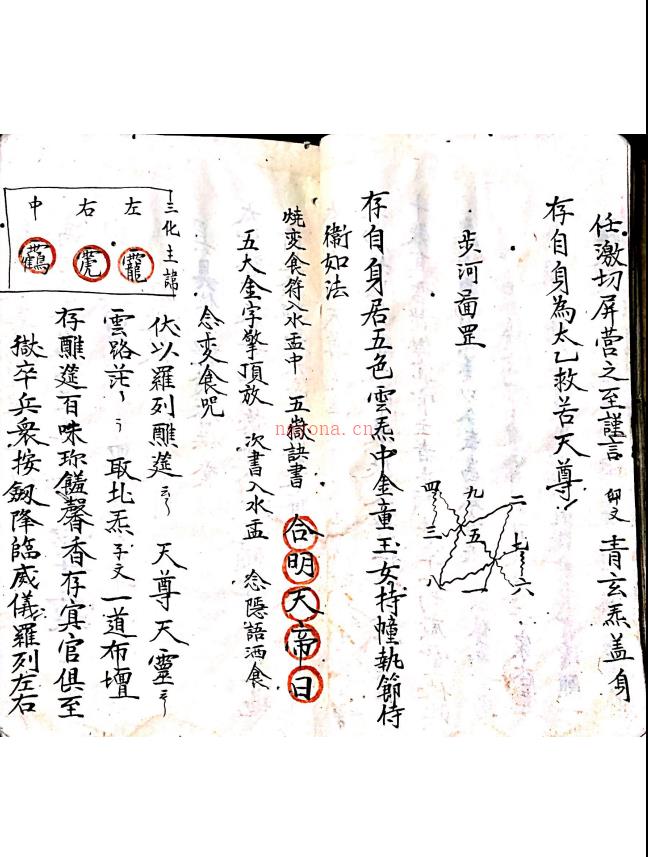 任激切屏营之至謹言 卯文 青玄炁盖身
存自身為太乙救苦天尊
步河畐罡
四 九 二
三 五 七
八 一 六
存自身居五色雲炁中金童玉女持幢執節侍
衛如法
燒変食符入水盂中 五嶽訣書 合明天帝日
五大金字擎頂放 次書入水盂 念隱語洒食
念変食咒
三化主諱
左 右 中
伏以羅列醮筵 天尊天靈
雲路茫〻 取北炁子文一道布壇
存醮筵百味珎饈馨香存冥官俱至
嶽卒兵衆按劔降臨威儀羅列左右
nanona.cn